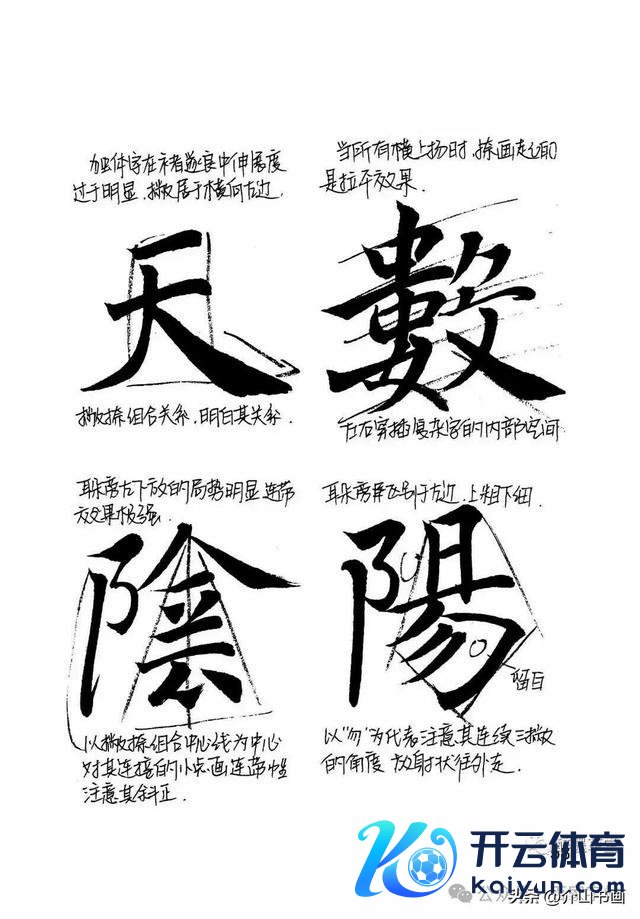 独体字在褚遂良中伸展度
过于明显.撇居于横向左边.
当所有横上扬时.捺画起到的
是拉平效果.
天
數
撇捺组合关系.明白其关系.
左右穿插复杂字的内部空间
耳朵旁左下放的局势明显连带
效果极强.
耳朵旁
于左边.上粗下细.
陰
陽
留白
以撇捺组合中心线为中心
对其连接的小点画连带时
注意其斜正.
以"勿"为代表注意其连续三撇
的角度 放射状往外走.
开云体育
kaiyun.com
头条 @介山书画